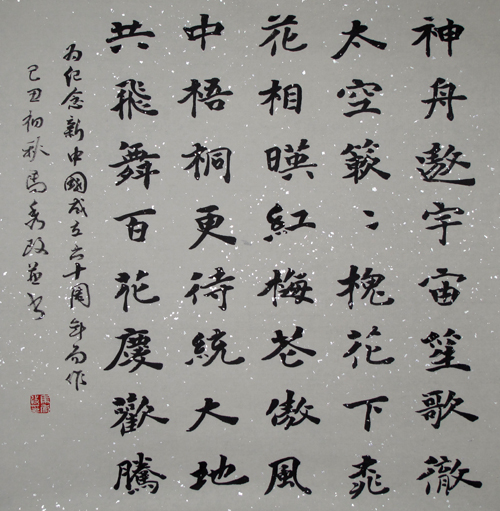 神舟遨宇宙笙歌徹
太空簌〻槐花下桃
花相暎紅梅芲傲風
中梧桐更待統大地
共飛舞百花慶歡騰
为纪念新中國成立六十周年而作
己丑初秋馬秀政並书